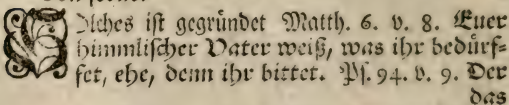 Solches ist gegründet Matth. 6. v. 8. Euer
himmlischer Vater weiß, was ihr bedürf-
fet, ehe, denn ihr bittet. Ps. 94. v. 9. Der
das